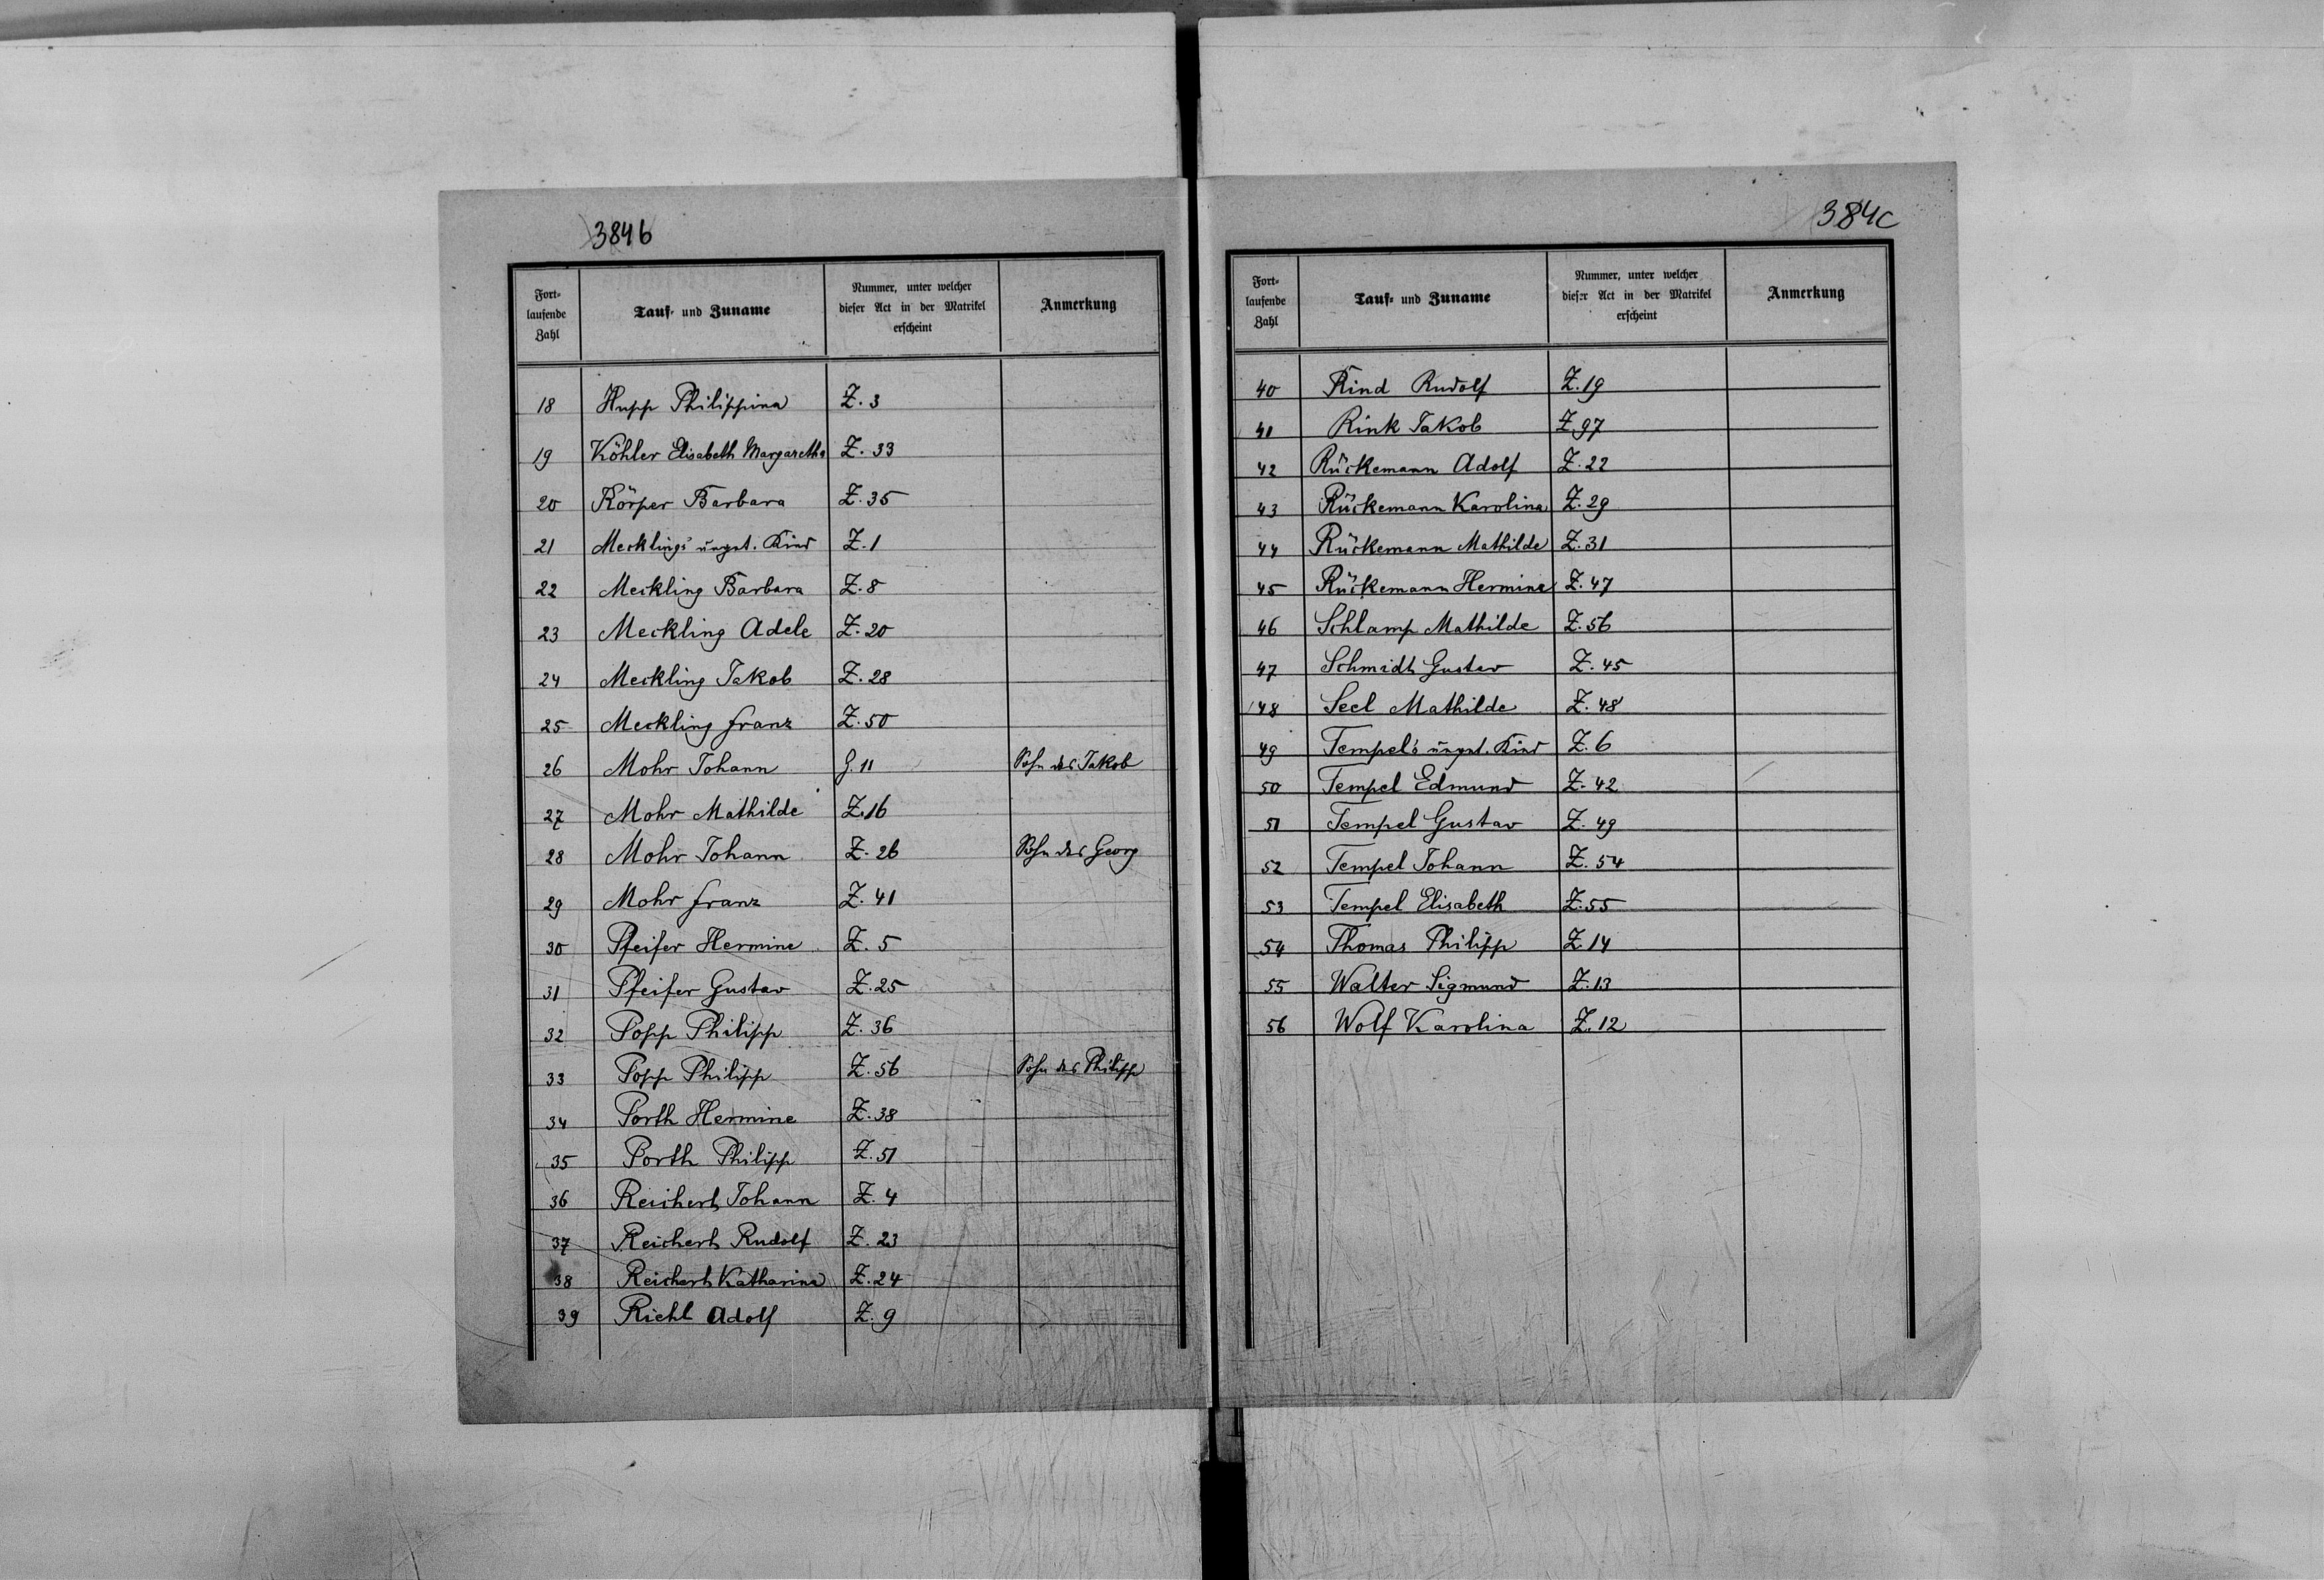 384b
Fort-laufende Zahl | Tauf- und Zuname | Nummer, unter welcher dieser Act in der Matrikel erscheint | Anmerkung
18 Hupp Philippina Z. 3
19 Köhler Elisabeth Margaretha Z. 33
20 Körper Barbara Z. 35
21 Mecklings ungt. Kind Z. 1
22 Meckling Barbara Z. 8
23 Meckling Adele Z. 20
24 Meckling Jakob Z. 28
25 Meckling Franz Z. 50
26 Mohr Johann Z. 11 Sohn des Jakob
27 Mohr Mathilde Z. 16
28 Mohr Johann Z. 26 Sohn des Georg
29 Mohr Franz Z. 41
30 Pfeifer Hermine Z. 5
31 Pfeifer Gustav Z. 25
32 Popp Philipp Z. 36
33 Popp Philipp Z. 56 Sohn des Philipp
34 Porth Hermine Z. 38
35 Porth Philipp Z. 51
36 Reichert Johann Z. 4
37 Reichert Rudolf Z. 23
38 Reichert Katharina Z. 24
39 Riehl Adolf Z. 9
384c
Fort-laufende Zahl | Tauf- und Zuname | Nummer, unter welcher dieser Act in der Matrikel erscheint | Anmerkung
40 Rind Rudolf Z. 19
41 Rink Jakob Z. 97
42 Rückemann Adolf Z. 22
43 Rückemann Karolina Z. 29
44 Rückemann Mathilde Z. 31
45 Rückemann Hermine Z. 47
46 Schlamp Mathilde Z. 56
47 Schmidt Gustav Z. 45
48 Seel Mathilde Z. 48
49 Tempel's ungt. Kind Z. 6
50 Tempel Edmund Z. 42
51 Tempel Gustav Z. 49
52 Tempel Johann Z. 54
53 Tempel Elisabeth Z. 55
54 Thomas Philipp Z. 14
55 Walter Sigmund Z. 13
56 Wolf Karolina Z. 12